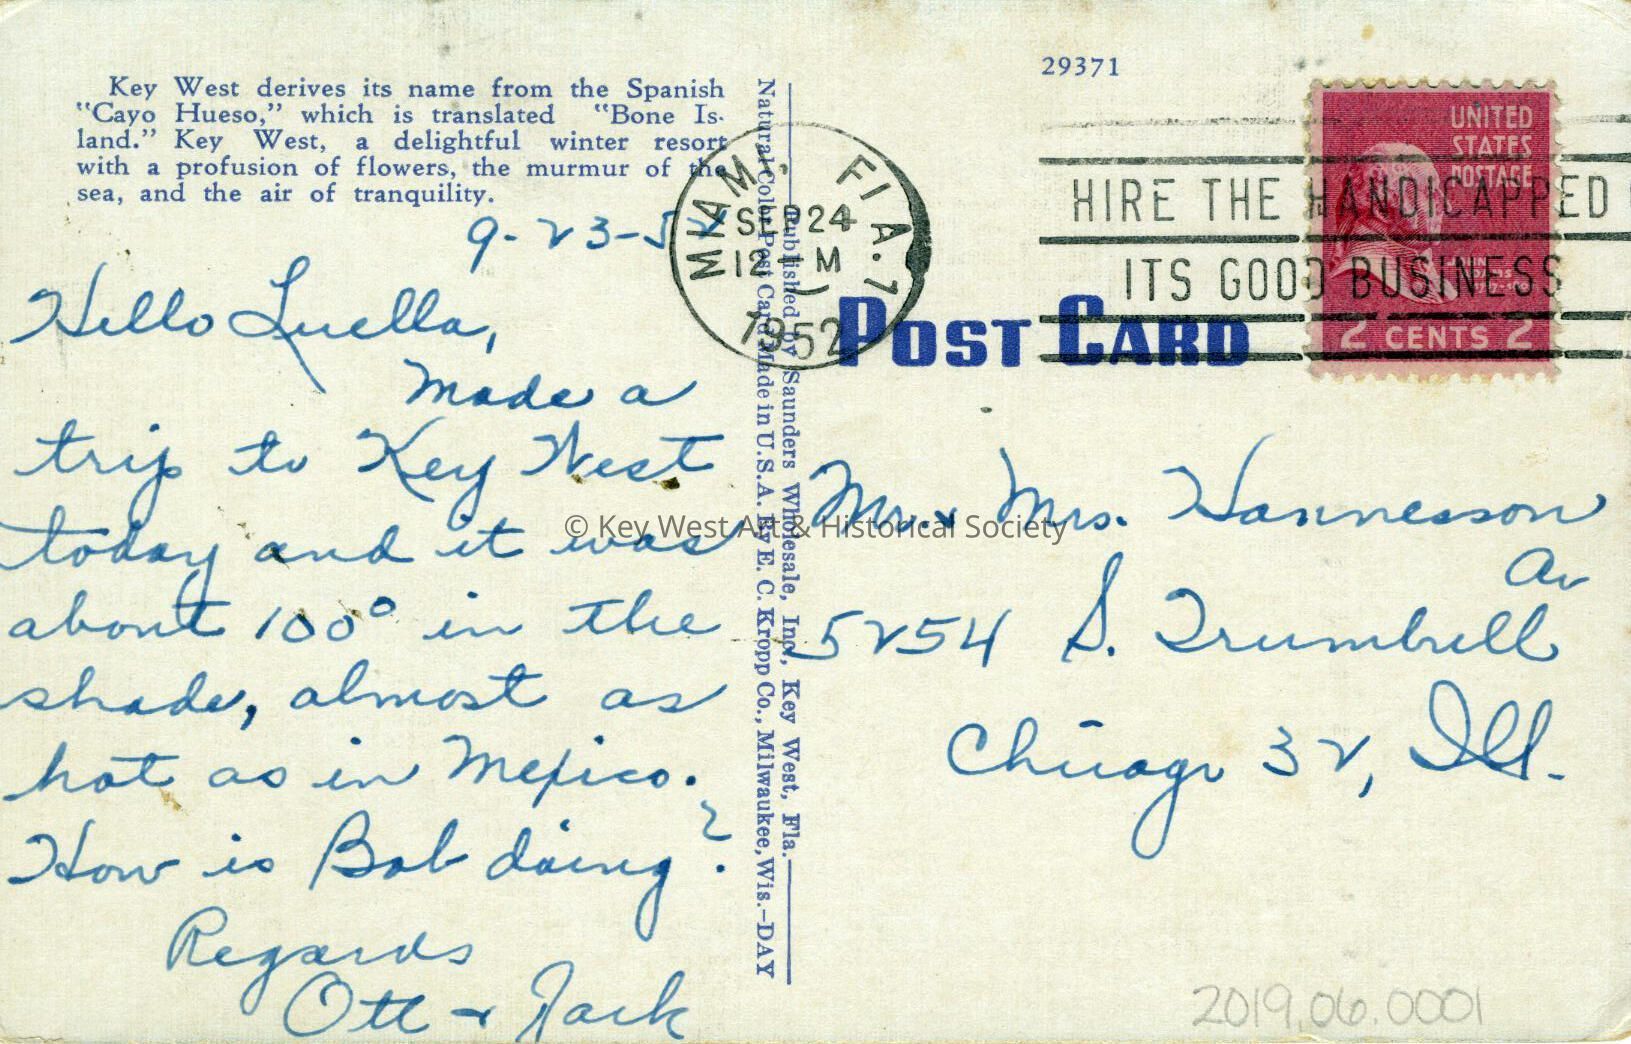 Key West derives its name from the Spanish
"Cayo Hueso," which is translated "Bone Is-
land." Key West, a delightful winter resort
with a profusion of flowers, the murmur of the
sea, and the air of tranquility.
9-23-52
Hello Luella,
Made a
trip to Key West
today and it was
about 100° in the
shade, almost as
hot as in Mexico.
How is Bob doing?
Regards
Ott & Jack
Natural Color Post Card Made in U.S.A. By E. C. Kropp Co., Milwaukee, Wis.-DAY
Published by Saunders Wholesale, Inc., Key West, Fla.
29371
MIAMI FLA. 7
SEP 24
12 M
1952
HIRE THE HANDICAPPED
ITS GOOD BUSINESS
UNITED
STATES
POSTAGE
JOHN
ADAMS
2 CENTS 2
POST CARD
Mr. & Mrs. Hannesson
5254 S. Trumbull Av
Chicago 32, Ill.
© Key West Art & Historical Society
2019.06.0001